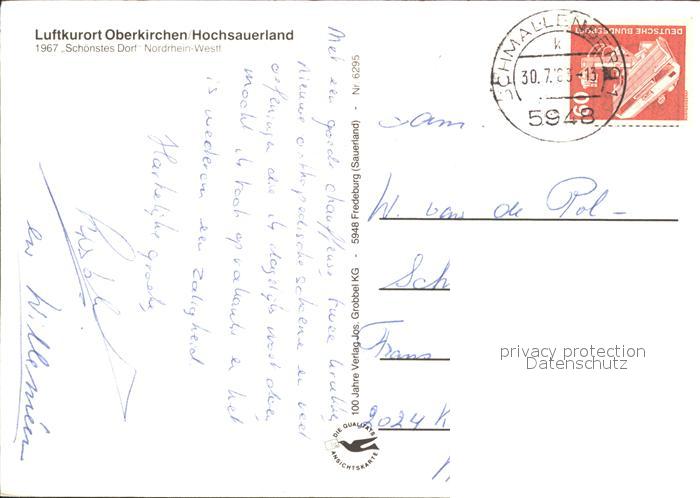 Luftkurort Oberkirchen/Hochsauerland
1967 „Schönstes Dorf" Nordrhein-Westf.
Met een goede chauffeuse, twee
nieuwe orthopedische schoenen en veel
oefeningen die ik dagelijks moet doen,
mocht ik toch op vakantie en het
is wederom een zaligheid
Hartelijke groeten,
en Willemien
100 Jahre Verlag Jos. Grobbel KG - 5948 Fredeburg (Sauerland) - Nr 6295
DIE QUALITÄTS
ANSICHTSKARTE
DEUTSCHE BUNDESPOST
60
SCHMALLENBERG 1
k
30.7.83-13
5948
Fam.
W. van de Pol -
Sch
Frans
2024 K
privacy protection
Datenschutz